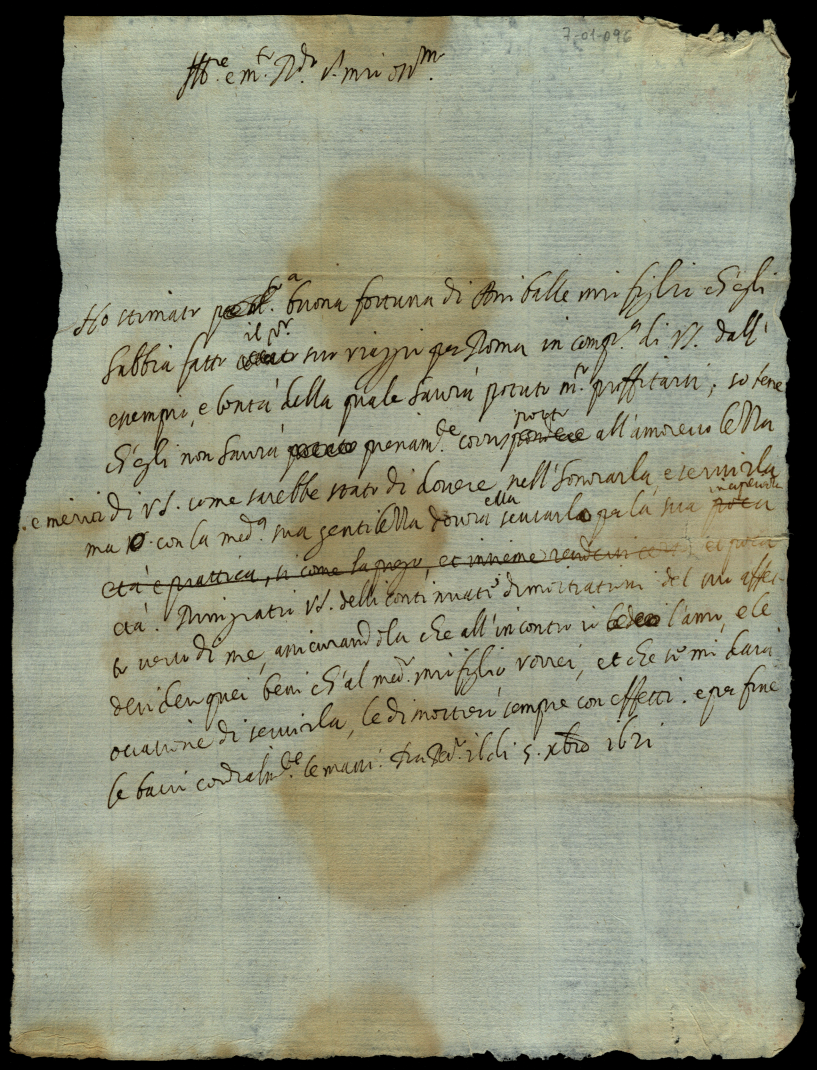 7-01-096
Ill.re e m.to R.do S.r mio oss.mo
Ho stimato p.r buona fortuna di Aniballe mio figlio ch'egli
habbia fatto il suo viaggio per Roma in comp.a di VS. dall'
esempio, e bontà della quale havrà potuto m.to proffitarsi; so bene
ch'egli non havrà pienam.te potuto all'amorevolezza
e meriti di VS. come sarebbe stato di dovere, nell'honorarla, e servirla
ma con la med.a sua gentilezza dovrà ella scusarlo per la sua
età e prattica, si come la prego, et insieme
età. Ringratio VS. delli continuati dimostrationi del suo affet-
to verso di me, assicurandola che all'incontro io l'amo, e le
desidero quei beni ch'al med.o mio figlio vorrei, et che se mi darà
occasione di servirla, le dimostrerò sempre con effetti. e per fine
le bacio cordialm.te le mani. il dì 5. xbro 1621